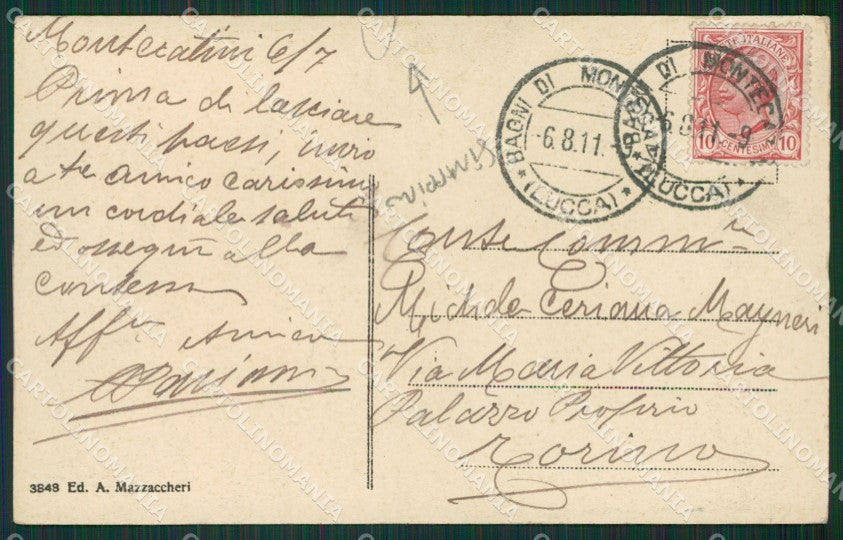 Montecatini 6/7
Prima di lasciare
questi paesi, invio
a te amico carissimo
un cordiale saluto
ed ossequi alla
contessa
Affmo Amico
3848 Ed. A. Mazzaccheri
BAGNI DI MONTECATINI
6.8.11.-9
(LUCCA)
BAGNI DI MONTECATINI
6.8.11.-9
(LUCCA)
POSTE ITALIANE
10 CENTESIMI 10
Conte Comm re
Michele Ceriana Mayneri
Via Maria Vittoria
Palazzo Proprio
Torino
CARTOLINOMANIA